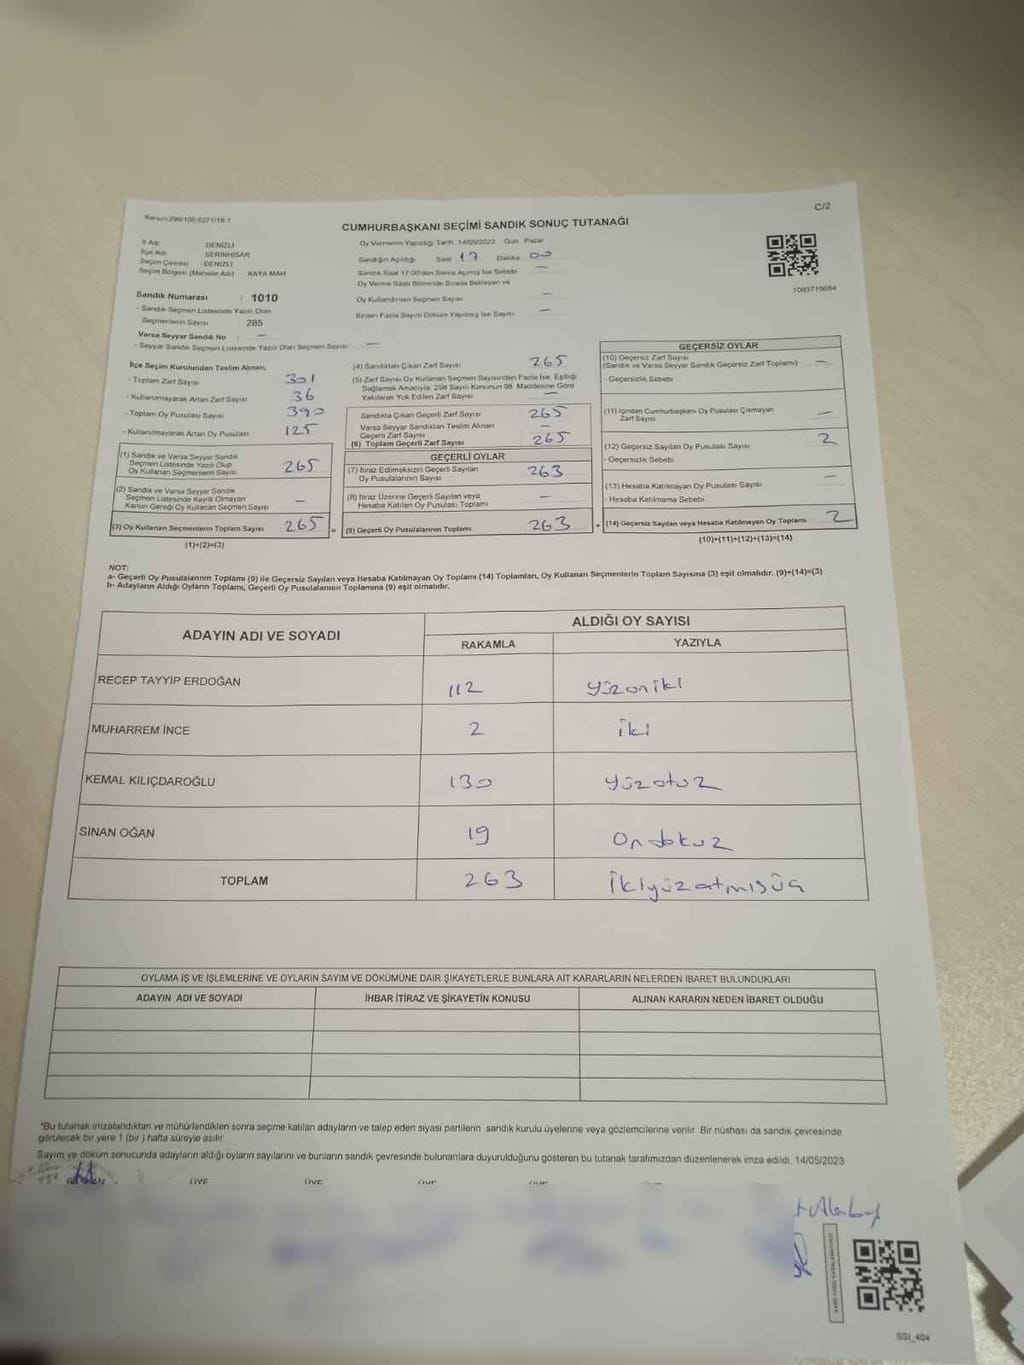 C/2
CUMHURBAŞKANI SEÇİMİ SANDIK SONUÇ TUTANAĞI
İl Adı DENİZLİ
İlçe Adı SERİNHİSAR
Seçim Çevresi : DENİZLİ
Seçim Bölgesi (Mahalle Adı) KAYA MAH
Oy Vermenin Yapıldığı Tarih 14/05/2023 Gün Pazar
Sandığın Açıldığı Saat 17 Dakika 00
Sandık Saat 17:00'den Sonra Açılmış İse Sebebi —
Oy Verme Saati Bitiminde Sırada Bekleyen ve
Oy Kullandırılan Seçmen Sayısı —
Birden Fazla Sayım Döküm Yapılmış İse Sayısı —
1093719684
Sandık Numarası : 1010
- Sandık Seçmen Listesinde Yazılı Olan
Seçmenlerin Sayısı 285
Varsa Seyyar Sandık No : —
- Seyyar Sandık Seçmen Listesinde Yazılı Olan Seçmen Sayısı —
İlçe Seçim Kurulundan Teslim Alınan;
- Toplam Zarf Sayısı 301
- Kullanılmayarak Artan Zarf Sayısı 36
- Toplam Oy Pusulası Sayısı 390
- Kullanılmayarak Artan Oy Pusulası 125
(1) Sandık ve Varsa Seyyar Sandık
Seçmen Listesinde Yazılı Olup
Oy Kullanan Seçmenlerin Sayısı 265
(2) Sandık ve Varsa Seyyar Sandık
Seçmen Listesinde Kayıtlı Olmayan
Kanun Gereği Oy Kullanan Seçmen Sayısı —
(3) Oy Kullanan Seçmenlerin Toplam Sayısı 265 =
(1)+(2)=(3)
(4) Sandıktan Çıkan Zarf Sayısı 265
(5) Zarf Sayısı Oy Kullanan Seçmen Sayısından Fazla İse, Eşitliği
Sağlamak Amacıyla, 298 Sayılı Kanunun 98. Maddesine Göre
Yakılarak Yok Edilen Zarf Sayısı —
Sandıkta Çıkan Geçerli Zarf Sayısı 265
Varsa Seyyar Sandıktan Teslim Alınan
Geçerli Zarf Sayısı —
(6) Toplam Geçerli Zarf Sayısı 265
GEÇERLİ OYLAR
(7) İtiraz Edilmeksizin Geçerli Sayılan
Oy Pusulasının Sayısı 263
(8) İtiraz Üzerine Geçerli Sayılan veya
Hesaba Katılan Oy Pusulası Toplamı —
(9) Geçerli Oy Pusulalarının Toplamı 263 +
GEÇERSİZ OYLAR
(10) Geçersiz Zarf Sayısı
(Sandık ve Varsa Seyyar Sandık Geçersiz Zarf Toplamı) —
- Geçersizlik Sebebi
(11) İçinden Cumhurbaşkanı Oy Pusulası Çıkmayan
Zarf Sayısı —
(12) Geçersiz Sayılan Oy Pusulası Sayısı 2
- Geçersizlik Sebebi
(13) Hesaba Katılmayan Oy Pusulası Sayısı —
- Hesaba Katılmama Sebebi
(14) Geçersiz Sayılan veya Hesaba Katılmayan Oy Toplamı 2
(10)+(11)+(12)+(13)=(14)
NOT:
a- Geçerli Oy Pusulalarının Toplamı (9) ile Geçersiz Sayılan veya Hesaba Katılmayan Oy Toplamı (14) Toplamları, Oy Kullanan Seçmenlerin Toplam Sayısına (3) eşit olmalıdır. (9)+(14)=(3)
b- Adayların Aldığı Oyların Toplamı, Geçerli Oy Pusulalarının Toplamına (9) eşit olmalıdır.
ADAYIN ADI VE SOYADI
ALDIĞI OY SAYISI
RAKAMLA YAZIYLA
RECEP TAYYİP ERDOĞAN 112 yüzoniki
MUHARREM İNCE 2 iki
KEMAL KILIÇDAROĞLU 130 yüzotuz
SİNAN OĞAN 19 Ondokuz
TOPLAM 263 İkiyüzatmışüç
OYLAMA İŞ VE İŞLEMLERİNE VE OYLARIN SAYIM VE DÖKÜMÜNE DAİR ŞİKAYETLERLE BUNLARA AİT KARARLARIN NELERDEN İBARET BULUNDUKLARI
ADAYIN ADI VE SOYADI İHBAR İTİRAZ VE ŞİKAYETİN KONUSU ALINAN KARARIN NEDEN İBARET OLDUĞU
*Bu tutanak imzalandıktan ve mühürlendikten sonra seçime katılan adayların ve talep eden siyasi partilerin sandık kurulu üyelerine veya gözlemcilerine verilir. Bir nüshası da sandık çevresinde
görülecek bir yere 1 (bir ) hafta süreyle asılır.
Sayım ve döküm sonucunda adayların aldığı oyların sayılarını ve bunların sandık çevresinde bulunanlara duyurulduğunu gösteren bu tutanak tarafımızdan düzenlenerek imza edildi. 14/05/2023
ÜYE ÜYE ÜYE ÜYE
SSİ_404